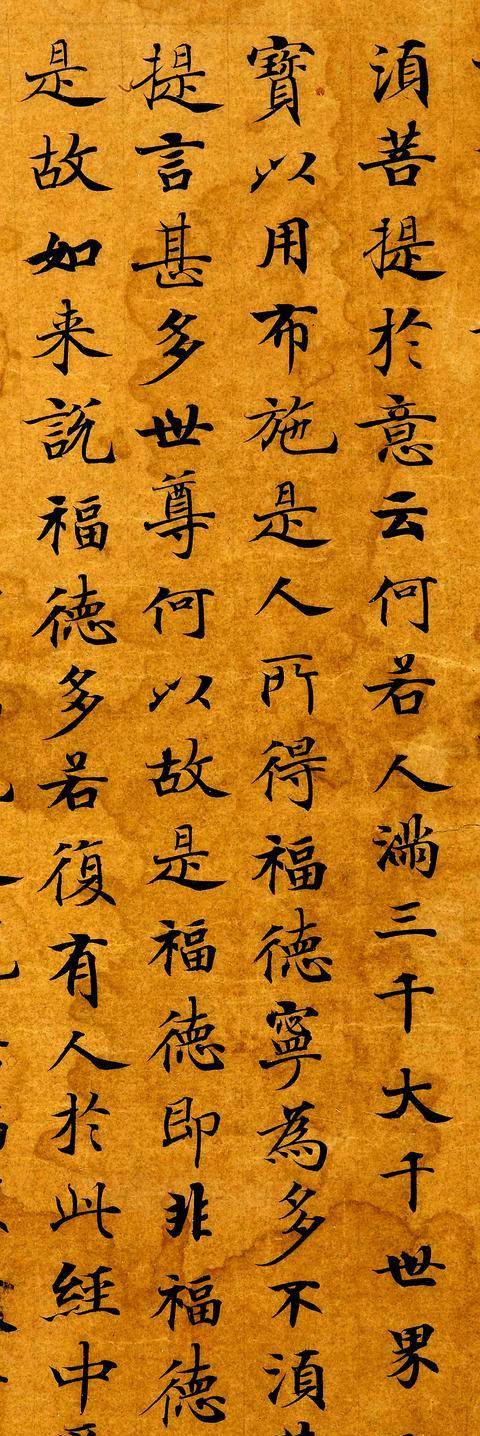 須菩提於意云何若人滿三千大千世界
寶以用布施是人所得福德寧為多不須
提言甚多世尊何以故是福德即非福德
是故如来說福德多若復有人於此經中